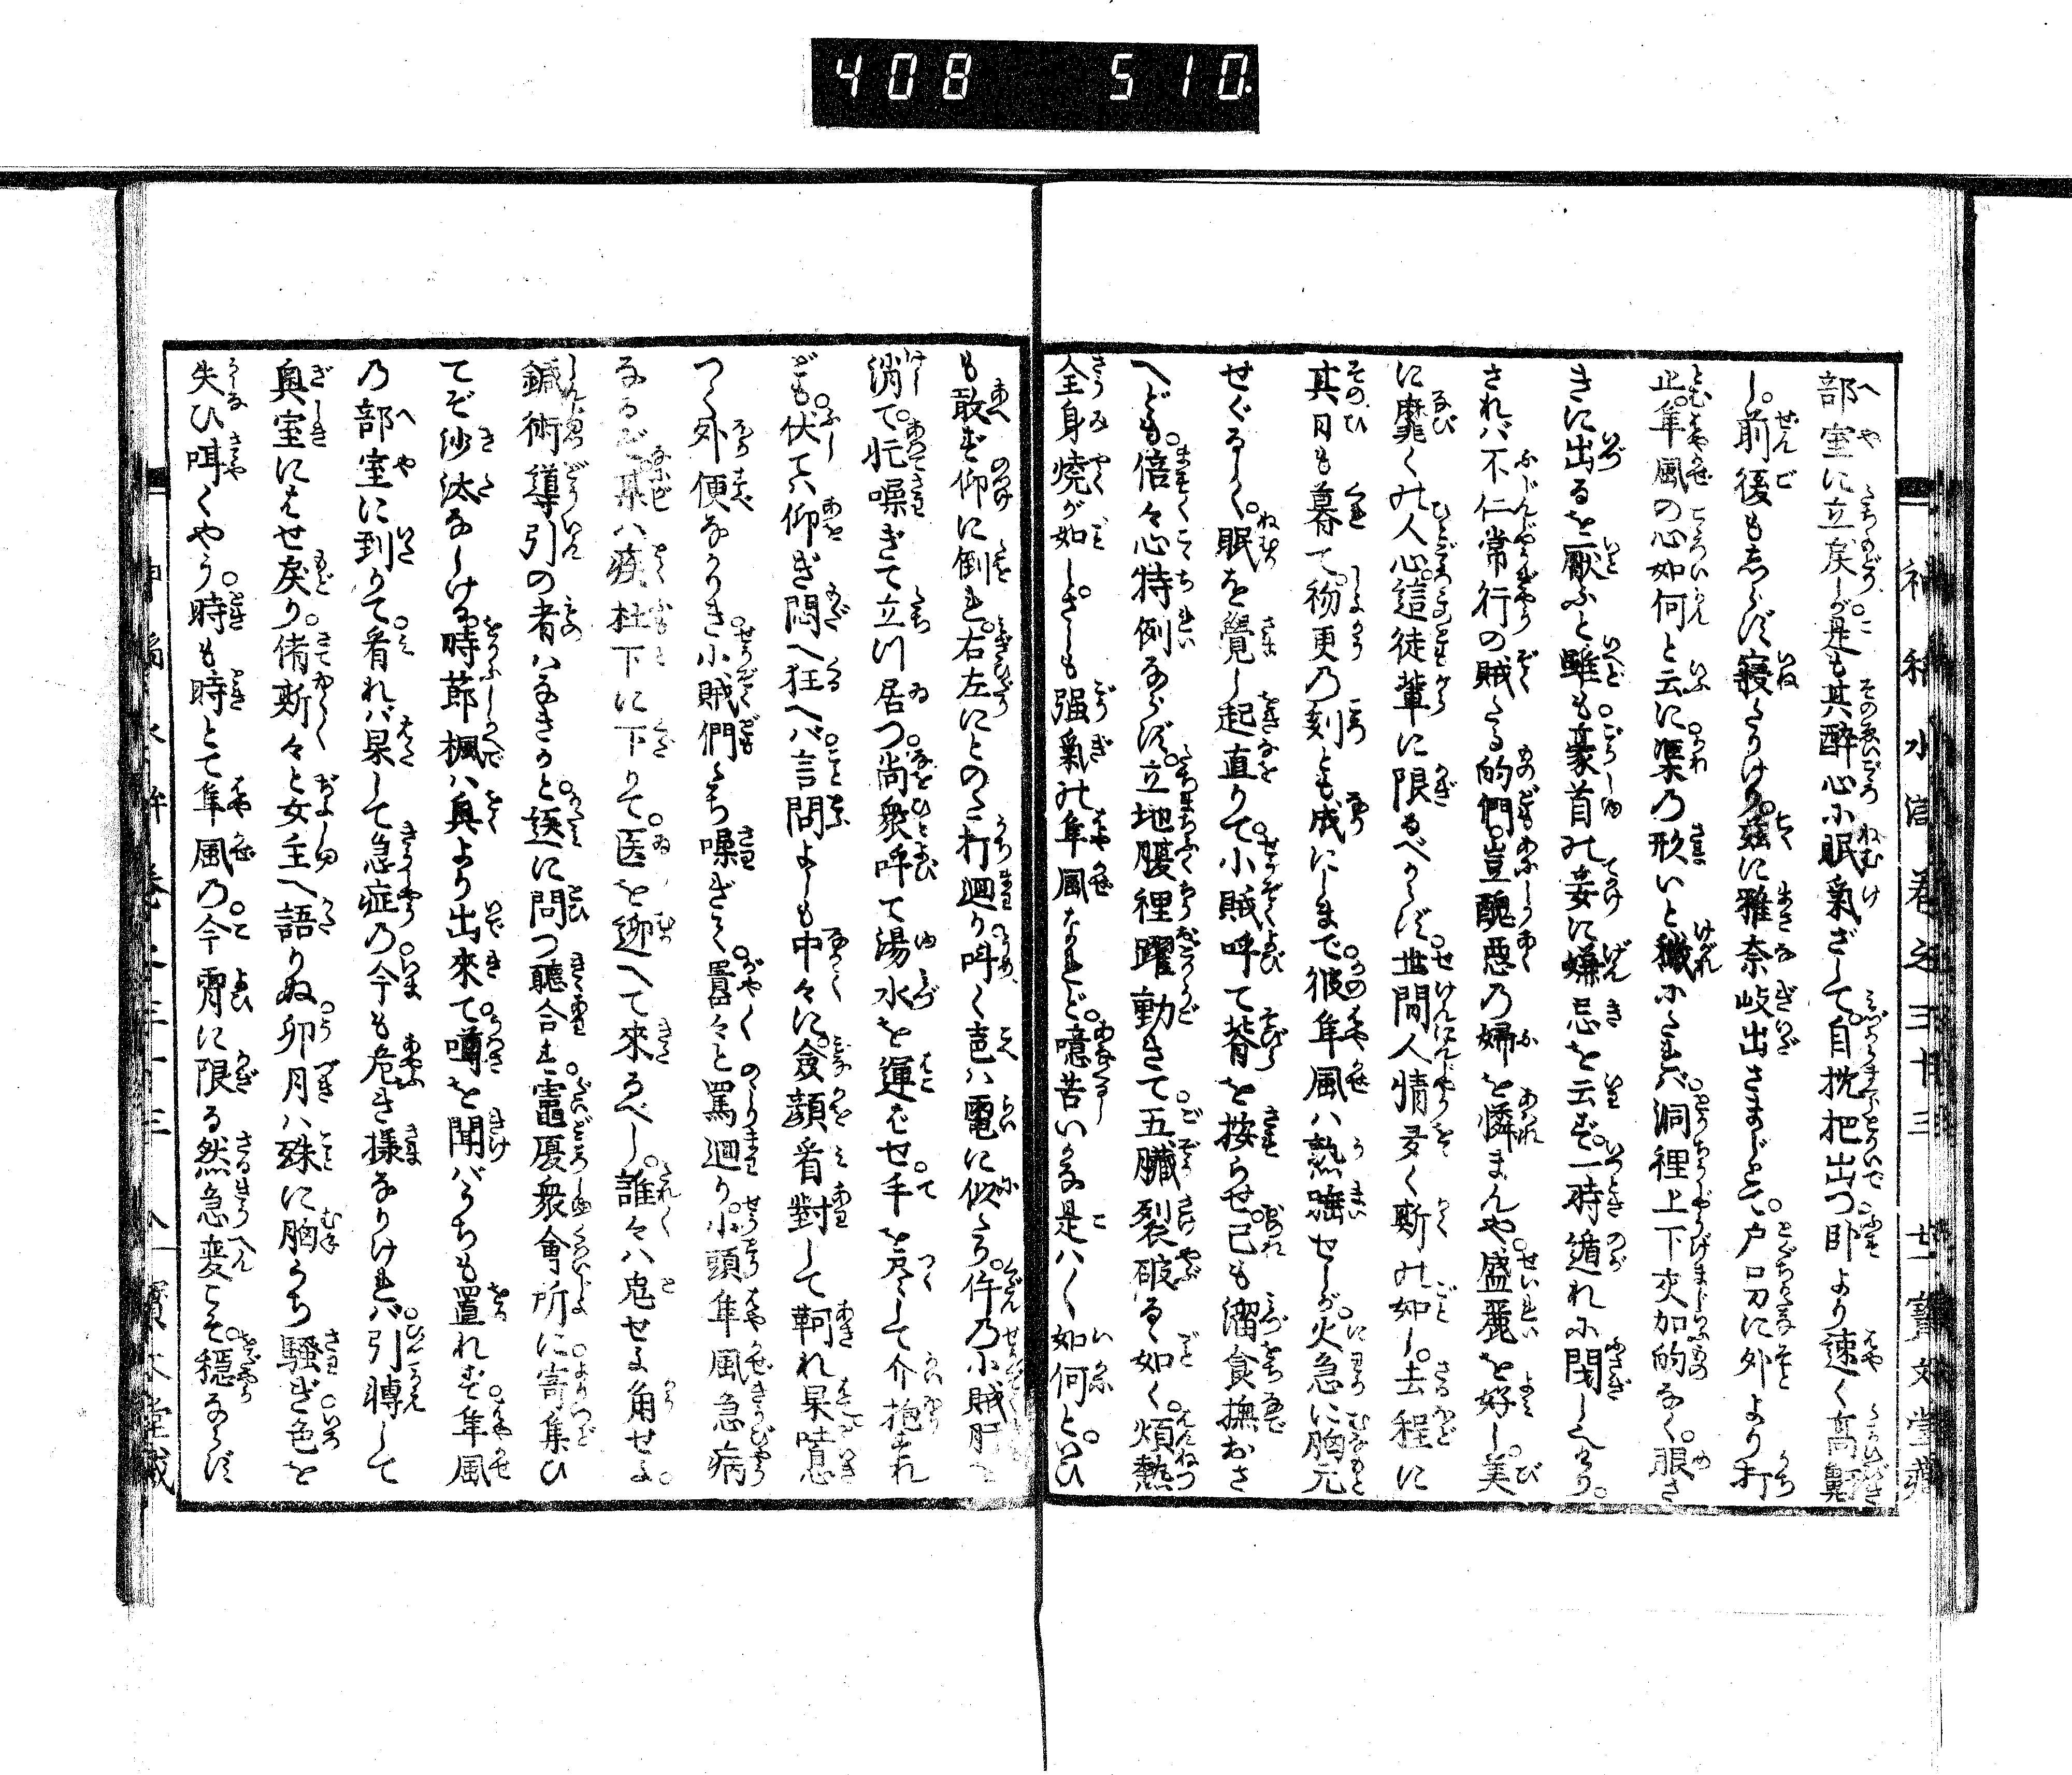 408 510
部室に立戻しが。是も其酔心に眠氣ざして。自抗把出つ卧より速く高鼾
し。前後もしらず寝たりけり。茲に雅奈岐出さまじとて。戸口に外より打
止。隼風の心如何と云に。渠の形いと穢にたれバ。洞裡上下交加的なく。眼さ
きに出るを厭ふと雖も。豪首の妾に嫌忌を云ず。一時遁れに閉しくなり。
されバ不仁常行の賊たる的們。豈醜悪の婦を憐まんや。盛麗を好し。美
に靡くの人心。這徒輩に限るべからず。世間人情多く斯の如し。去程に
其日も暮て。初更の刻とも成にしまで。彼隼風ハ熟睡せしが。火急に胸元
せぐるしく。眠を覺し起直りて。小賊呼て脊を按らせ。己も溜食撫おさ
へども。倍々心特例ならず。立地腹裡躍動きて五臓裂破るゝ如く。煩熱
全身燒が如し。さしも强氣の隼風なれど。噫苦いかな是ハく如何と。いひ
も敢ず仰に倒れ。右左にとのた打廻り。叫く声ハ電に似たり。件の小賊肝を
消て。忙噪ぎて立つ居つ。尚衆呼て湯水を運ばせ。手を尽して介抱すれ
ども。伏てハ仰ぎ悶へ狂へバ。言問よしも中々に。僉顔看對して軻れ果。嘆息
つく外便なかりき。小賊們たち噪ぎて。囂々と罵廻り。小頭隼風急病
なるぞ。某ハ疾杜下に下りて。医を迎へて來るべし。誰々ハ兎せよ角せよ。
鍼術導引の者ハなきかと。送に問つ聽合す。竈優衆會所に寄集ひ
てぞ沙汰なしける。時節楓ハ奥より出來て。噂を聞バうちも置れず。隼風
の部室に到りて。看れバ果して急症の。今も危き樣なりけれバ。引轉して
奥室にはせ戻り。偖斯々と女主へ語りぬ。卯月ハ殊に胸うち騒ぎ。色を
失ひ咡くやう。時も時とて隼風の。今宵に限る然急変こそ。穏ならず